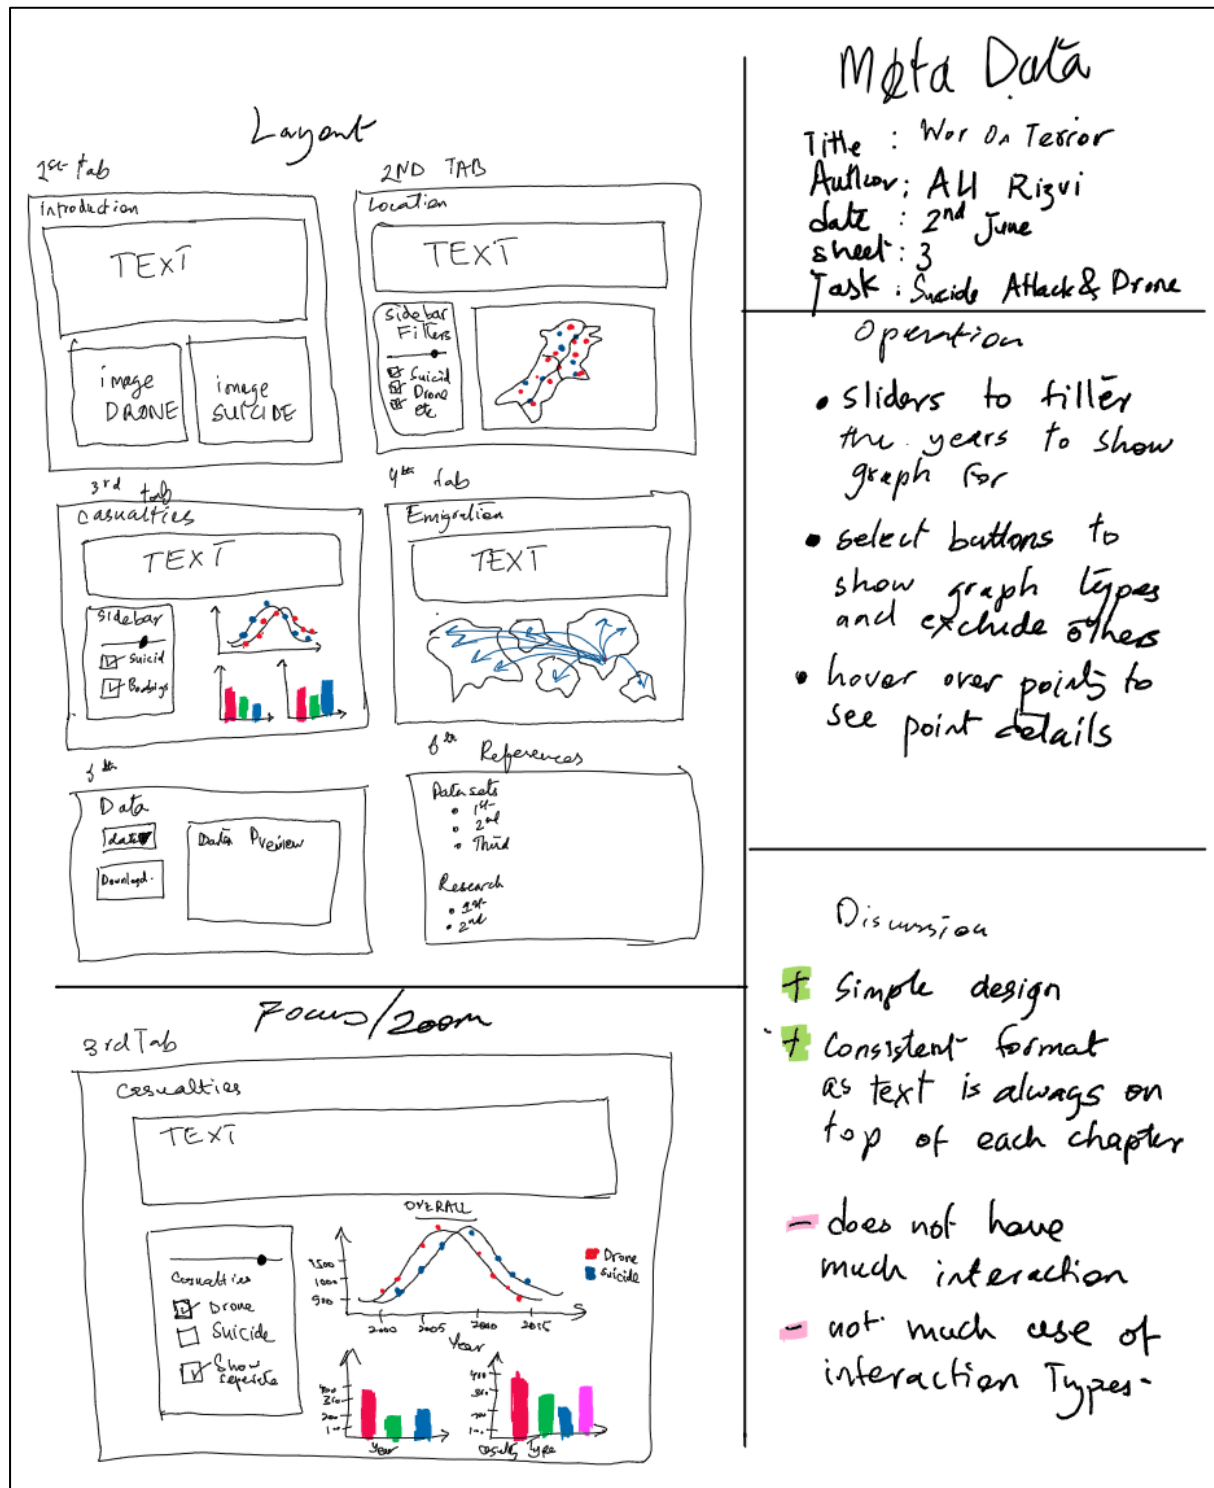 Layout
1st tab
Introduction
TEXT
image
DRONE
image
SUICIDE
2ND TAB
Location
TEXT
Sidebar
Filters
Suicid
Drone
etc
3rd tab
Casualties
TEXT
Sidebar
Suicid
4th tab
Emigration
TEXT
5th
Data
data
Download.
Data Preview
6th References
Datasets
1st
2nd
Third
Research
1st
2nd
Focus/Zoom
3rd Tab
Casualties
TEXT
Casualties
Drone
Suicide
Show
seperate
OVERALL
1500
1000
500
2000 2005 2010 2015
Year
Drone
Suicide
350
200
100
Year
400
350
200
100
Type
Meta Data
Title : War On Terror
Author: Ali Rizvi
date : 2nd June
sheet: 3
Task : Suicide Attack & Drone
Operation
• sliders to filter
the years to show
graph for
• select buttons to
show graph types
and exclude others
• hover over points to
see point details
Discussion
+ Simple design
+ Consistent format
as text is always on
top of each chapter
- does not have
much interaction
- not much use of
interaction Types-